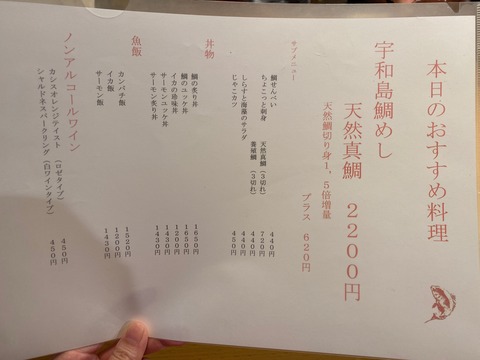 本日のおすすめ料理
宇和島鯛めし
天然真鯛 2200円
天然鯛切り身1,5倍増量
プラス 620円
サブメニュー
鯛せんべい 440円
ちょこっと刺身 天然真鯛(3切れ) 720円
養殖鯛(3切れ) 440円
しらすと海藻のサラダ 440円
じゃこカツ 450円
丼物
鯛の炙り丼 1650円
鯛のユッケ丼 1650円
イカの珍味丼 1200円
サーモンユッケ丼 1430円
サーモン炙り丼 1430円
魚飯
カンパチ飯 1520円
イカ飯 1200円
サーモン飯 1430円
ノンアルコールワイン
カシスオレンジテイスト(ロゼタイプ) 450円
シャルドネスパークリング(白ワインタイプ) 450円